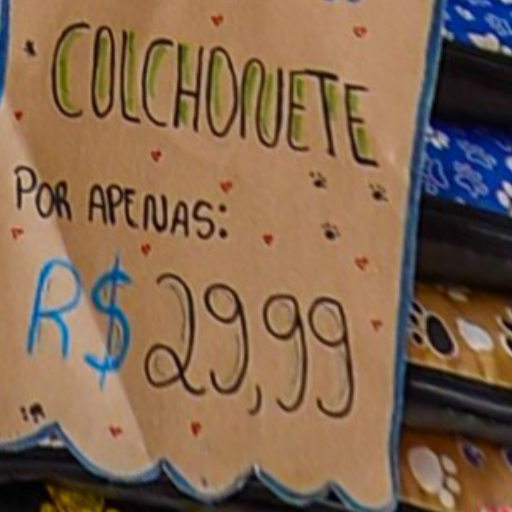 COLCHONETE
POR APENAS:
R$ 29,99